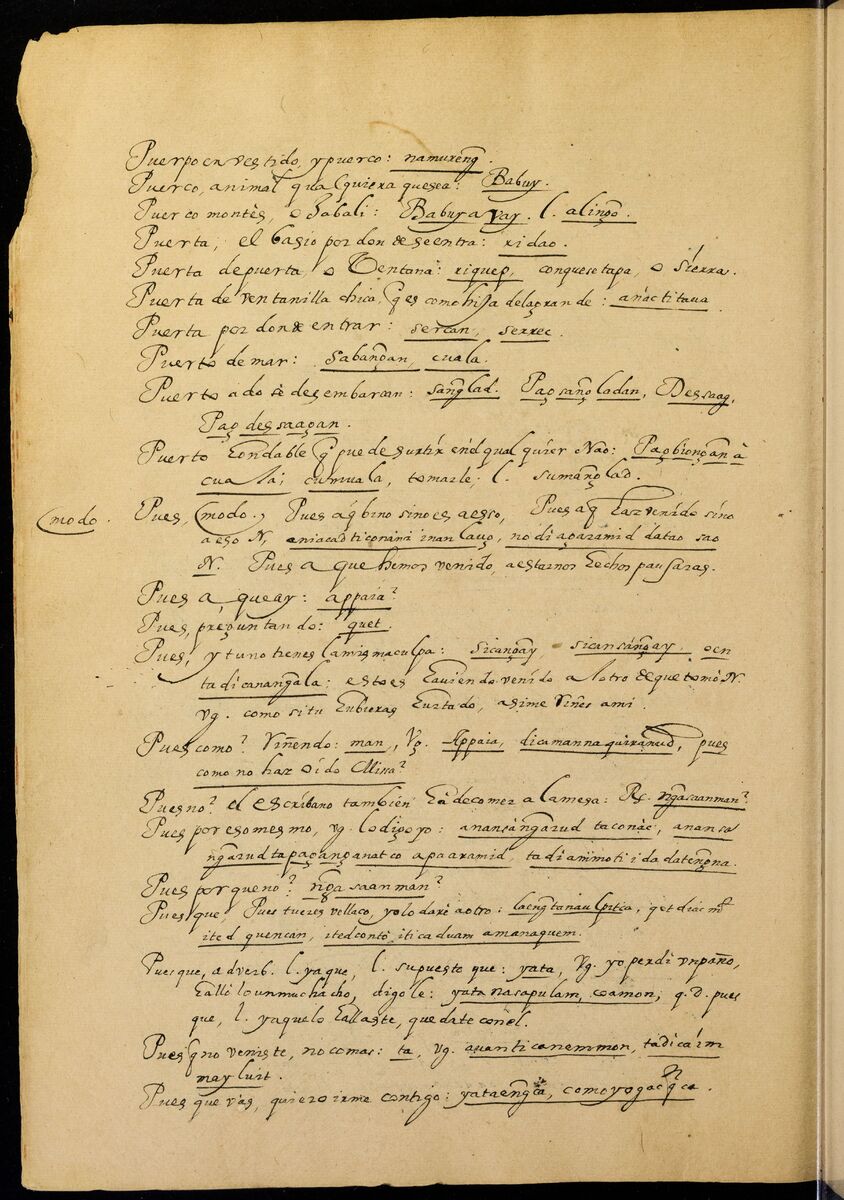 Puerpo en vestido, y puerco: namureng̃.
Puerco, animal qualquiera que sea: Babuy.
Puerco montès, o Jabali: Babuy a vay. l. alingo.
Puerta, el basio por donde se entra: ridao.
Puerta de puerta, o Ventana: riquep, conque se tapa, o sierra.
Puerta de ventanilla chica, q̃ es como hija de la grande: anactitava
Puerta por donde entrar: sercan, serrec.
Puerto de mar: sabang̃an, cuala.
Puerto ado se desembarcan: sang̃lad. Pag sang̃ladan, Dessaag,
Pag dessaagan.
Puerto hondable q̃ puede surtir en èl qual quier Nao: Pagbiong̃an à
cuala; cumuala, tomarle; l. sumang̃lad.
(modo. Pues, (modo., Pues áq̃ bino sino es a esso, Pues a q̃ has venido sino
a eso N, aniacadticonami inanlavo, no di agaramid datao sao
N. Pues a que hemos venido, a estarnos hechos pausaras.
Pues a, que ay: appaia?
Pues, preguntando: quet.
Pues, y tu no tienes la misma culpa: sicang̃ay sicansáng̃ay, ocn
tadicanang̃ala: esto es haviendo venido a lotro de que tomó N.
vg. como si tu hubieras hurtado, asime viñes ami.
Pues como? Viñendo: man, Vg. Appaia, dicamannaquiranud, pues
como no haz oído Missa?
Pues no? el escríbano también hà de comer a la mesa: R. ng̃asaanman?
Pues por eso mesmo, vg. lo digo yo: anansàng̃arud taconàe, anansa
ng̃arudtapagang̃anatco apaaramid, tadiammoti ida dateng̃na.
Pues por que nó? ng̃a saanman?
Pues que, Pues tu eres vellaco, yo lo daré a otro:
ited quencan, itedcontò, iticaduam amanaquem.
Pues que, adverb. l. ya que, l. supuesto que: yata, Vg. yo perdi vn paño,
halliló un muchacho, digole: yata nasapulam, coamon, q. D. pues
que, l. ya que lo hallaste, quedate con èl.
Pues q̃ no veniste, no comas: ta, vg. avanticanemmon, tadicaim
may luit.
Pues que vàs, quiero irme contigo: yataeng̃ca, comoyogac q̃ca.